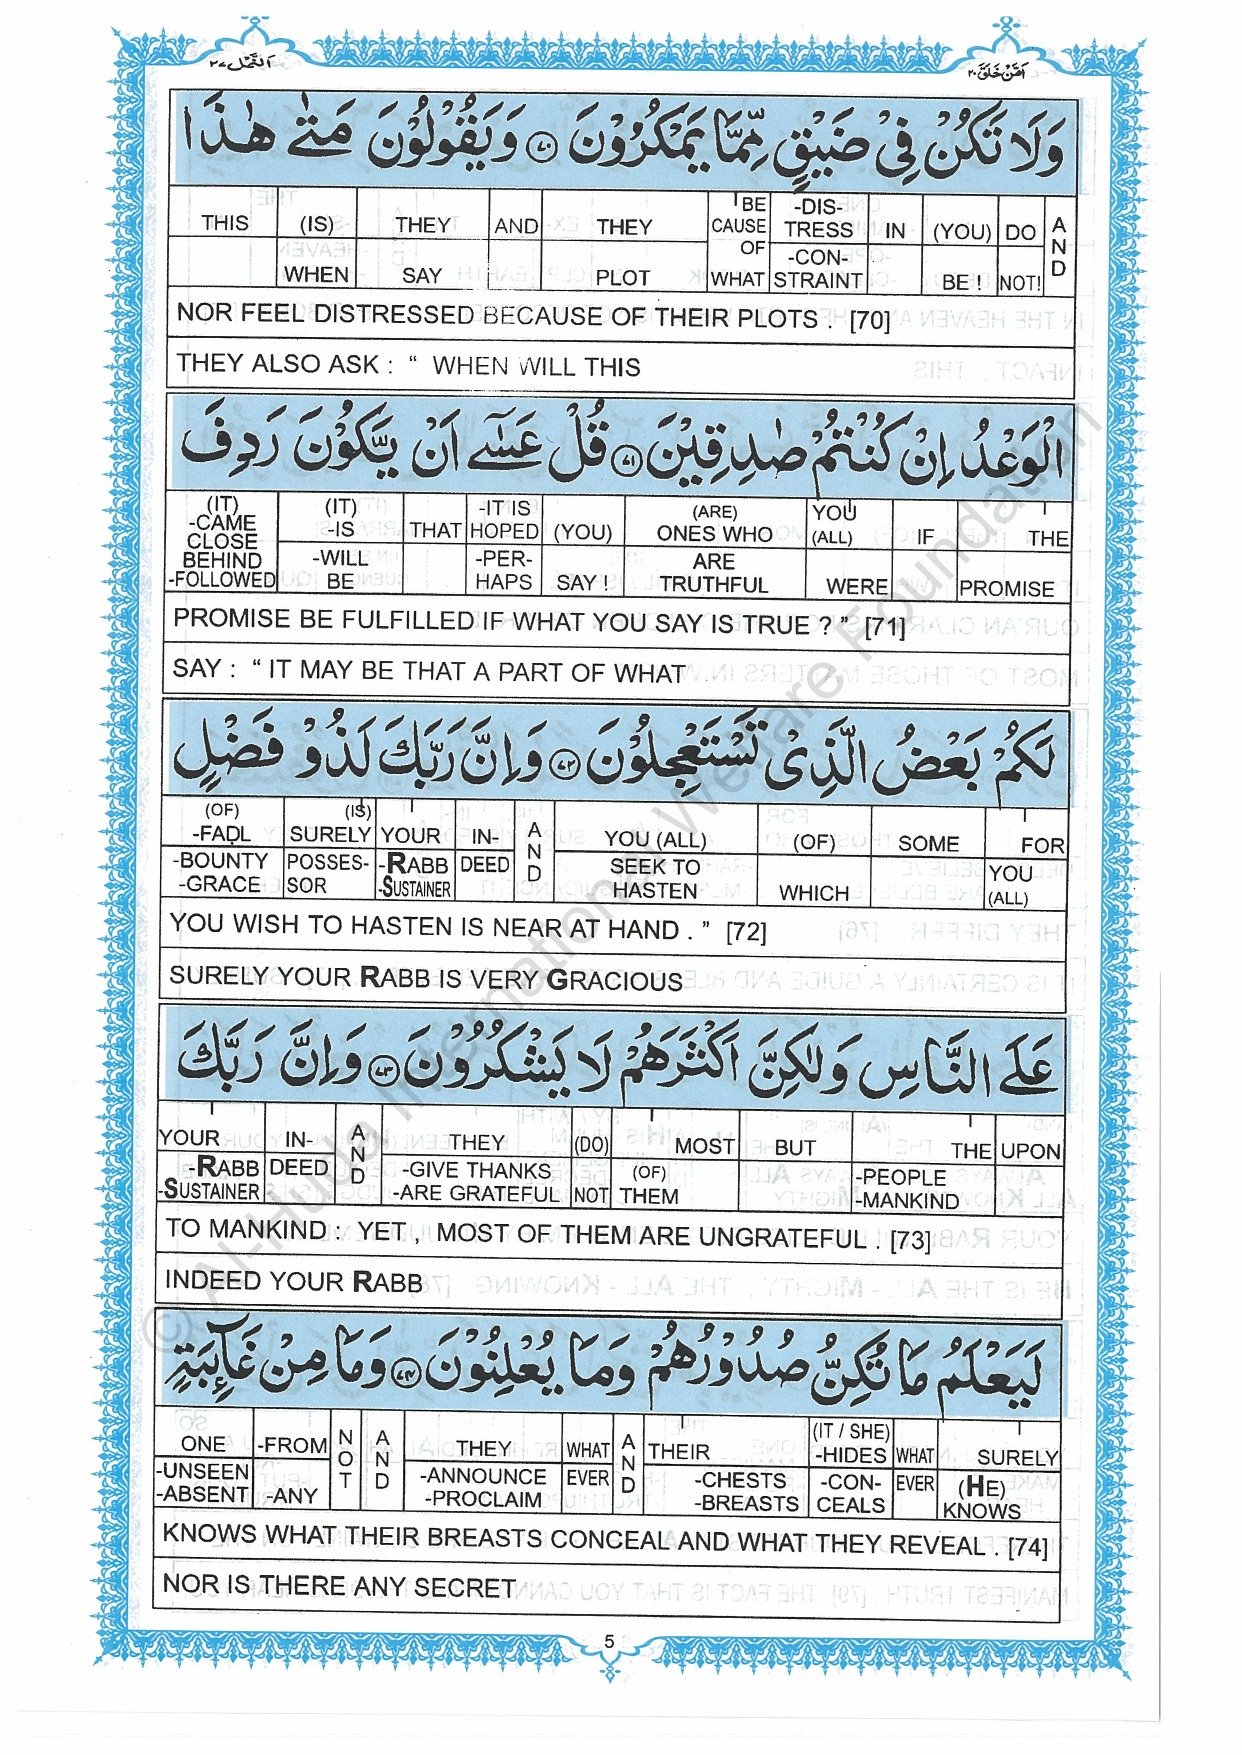 اَمَّنْ خَلَقَ ٢٠
اَلنَّمْل ٢٧
وَلَا تَكُنْ فِيْ ضَيْقٍ مِّمَّا يَمْكُرُوْنَ ٧٠ وَيَقُوْلُوْنَ مَتٰى هٰذَا
THIS (IS) THEY AND THEY BE CAUSE OF -DIS- TRESS IN (YOU) DO AND
WHEN SAY PLOT WHAT -CON- STRAINT BE ! NOT!
NOR FEEL DISTRESSED BECAUSE OF THEIR PLOTS . [70]
THEY ALSO ASK : “ WHEN WILL THIS
الْوَعْدُ اِنْ كُنْتُمْ صٰدِقِيْنَ ٧١ قُلْ عَسٰٓى اَنْ يَّكُوْنَ رَدِفَ
(IT) -CAME CLOSE (IT) -IS THAT -IT IS HOPED (YOU) (ARE) ONES WHO YOU (ALL) IF THE
BEHIND -FOLLOWED -WILL BE -PER- HAPS SAY ! ARE TRUTHFUL WERE PROMISE
PROMISE BE FULFILLED IF WHAT YOU SAY IS TRUE ? ” [71]
SAY : “ IT MAY BE THAT A PART OF WHAT
لَكُمْ بَعْضُ الَّذِيْ تَسْتَعْجِلُوْنَ ٧٢ وَاِنَّ رَبَّكَ لَذُوْ فَضْلٍ
(OF) -FADL (IS) SURELY YOUR IN- AND YOU (ALL) (OF) SOME FOR
-BOUNTY -GRACE POSSES- SOR -RABB -SUSTAINER DEED SEEK TO HASTEN WHICH YOU (ALL)
YOU WISH TO HASTEN IS NEAR AT HAND . ” [72]
SURELY YOUR RABB IS VERY GRACIOUS
عَلَى النَّاسِ وَلٰكِنَّ اَكْثَرَهُمْ لَا يَشْكُرُوْنَ ٧٣ وَاِنَّ رَبَّكَ
YOUR IN- AND THEY (DO) MOST BUT THE UPON
-RABB -SUSTAINER DEED -GIVE THANKS -ARE GRATEFUL NOT (OF) THEM -PEOPLE -MANKIND
TO MANKIND : YET , MOST OF THEM ARE UNGRATEFUL . [73]
INDEED YOUR RABB
لَيَعْلَمُ مَا تُكِنُّ صُدُوْرُهُمْ وَمَا يُعْلِنُوْنَ ٧٤ وَمَا مِنْ غَآئِبَةٍ
ONE -FROM NOT AND THEY WHAT AND THEIR (IT / SHE) -HIDES WHAT SURELY
-UNSEEN -ABSENT -ANY -ANNOUNCE -PROCLAIM EVER -CHESTS -BREASTS -CON- CEALS EVER (HE) KNOWS
KNOWS WHAT THEIR BREASTS CONCEAL AND WHAT THEY REVEAL . [74]
NOR IS THERE ANY SECRET
5
© Al-Huda International Welfare Foundation